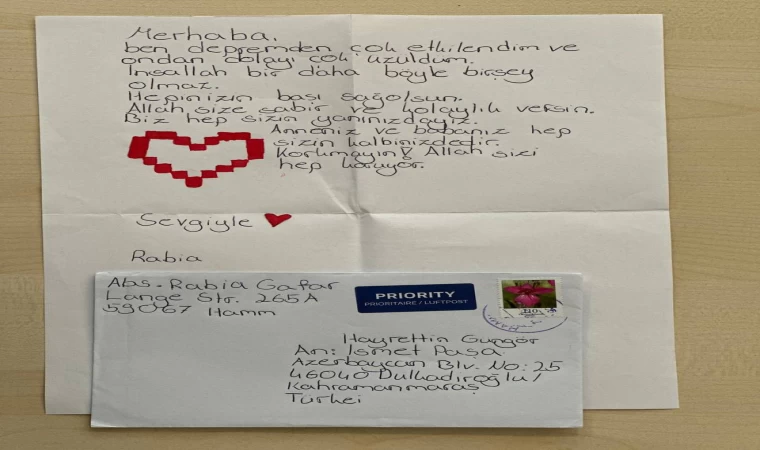 Merhaba.
ben depremden çok etkilendim ve
ondan dolayı çok üzüldüm.
İnşallah bir daha böyle birşey
olmaz.
Hepinizin başı sağolsun.
Allah size sabır ve kolaylık versin.
Biz hep sizin yanınızdayız.
Anneniz ve babanız hep
sizin kalbinizdedir.
Korkmayın! Allah sizi
hep koruyor.
Sevgiyle
Rabia
Abs. Rabia Gafar
Lange Str. 265A
59067 Hamm
PRIORITY
PRIORITAIRE / LUFTPOST
Hayrettin Güngör
An: İsmet Paşa
Azerbaycan Blv. No: 25
46040 Dulkadiroğlu/
Kahramanmaraş
Türkei